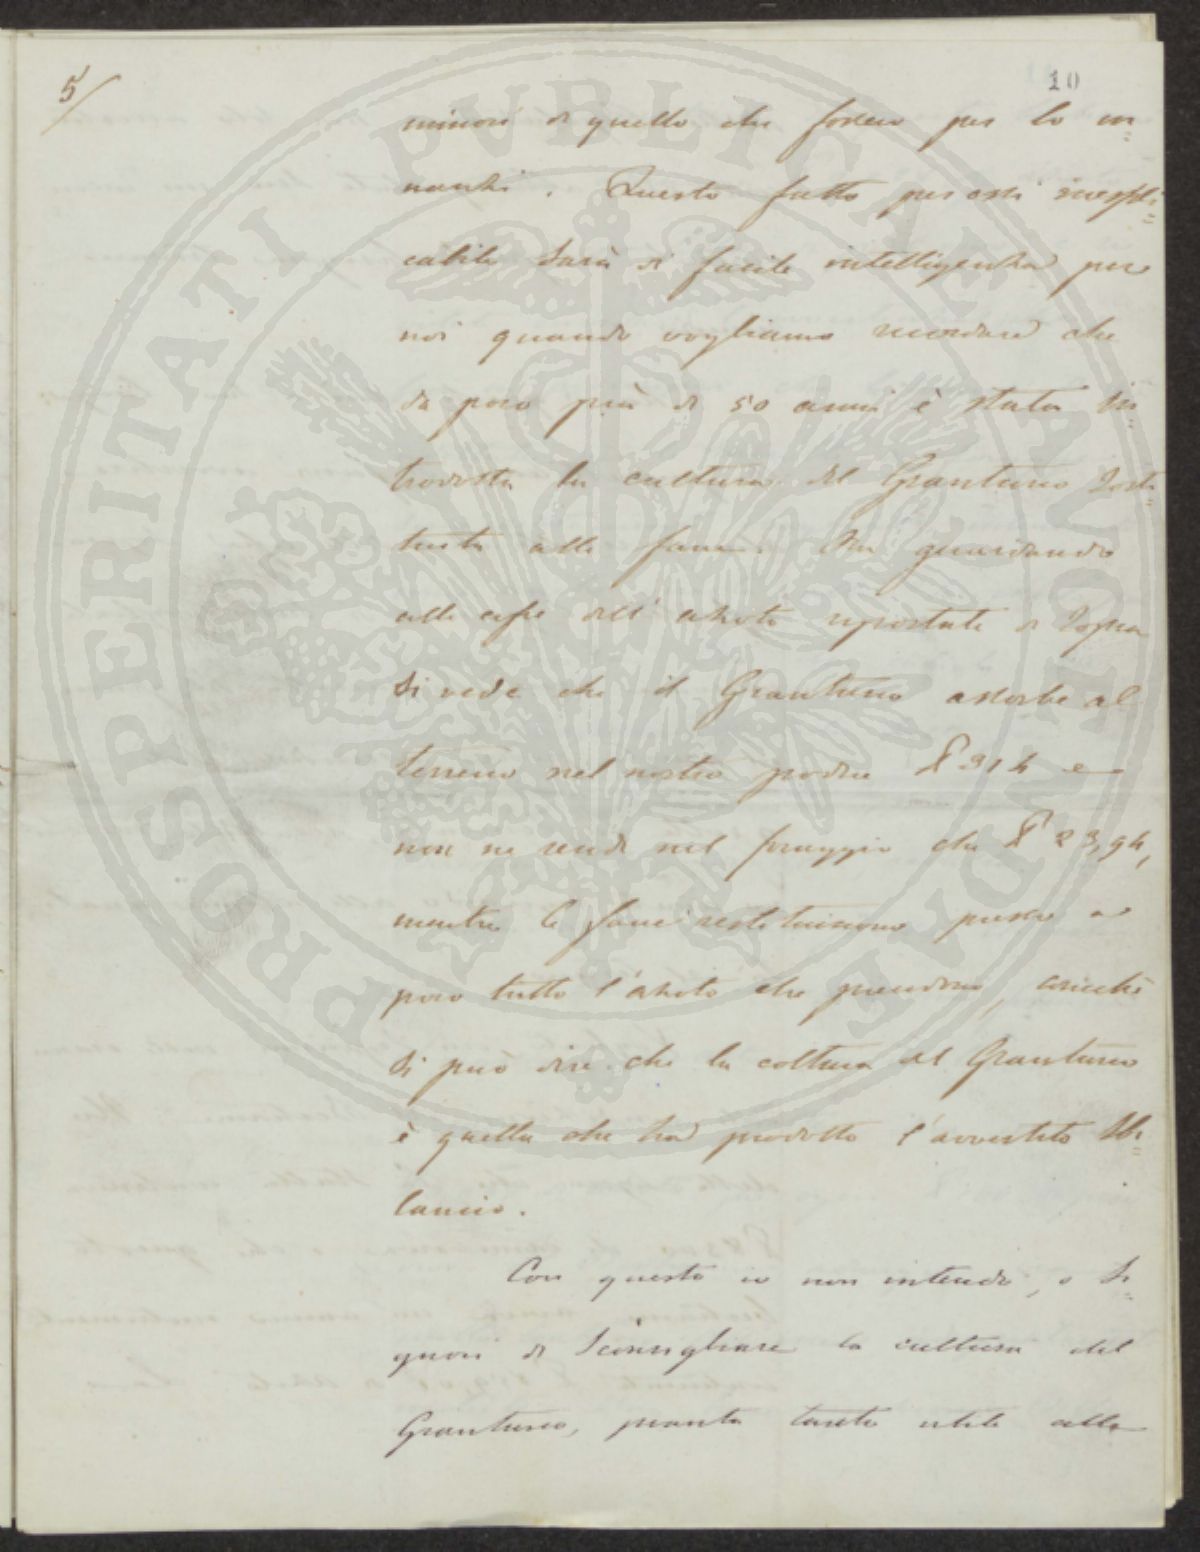 5/
10
minori di quello che fossero per lo in=
nanzi. Questo fatto per essi inespli=
cabile sarà di facile intelligenza per
noi quando vogliamo ricordare che
da poco più di 50 anni è stata in=
trodotta la cultura del Granturco sosti=
tuita alle fave. Ma guardando
alle cifre dell'azoto riportate di sopra
si vede che il Granturco assorbe al
terreno nel nostro podere 314 e
non ne rende nel foraggio che 23,94,
mentre le fave restituiscono presso a
poco tutto l'azoto che prendono, cosicchè
si può dire che la coltura del Granturco
è quella che ha prodotto l'avvertito sbi=
lancio.
Con questo io non intendo, o Si=
gnori di sconsigliare la cultura del
Granturco, pianta tanto utile alla
PROSPERITATI PUBLICAE AUGENDAE